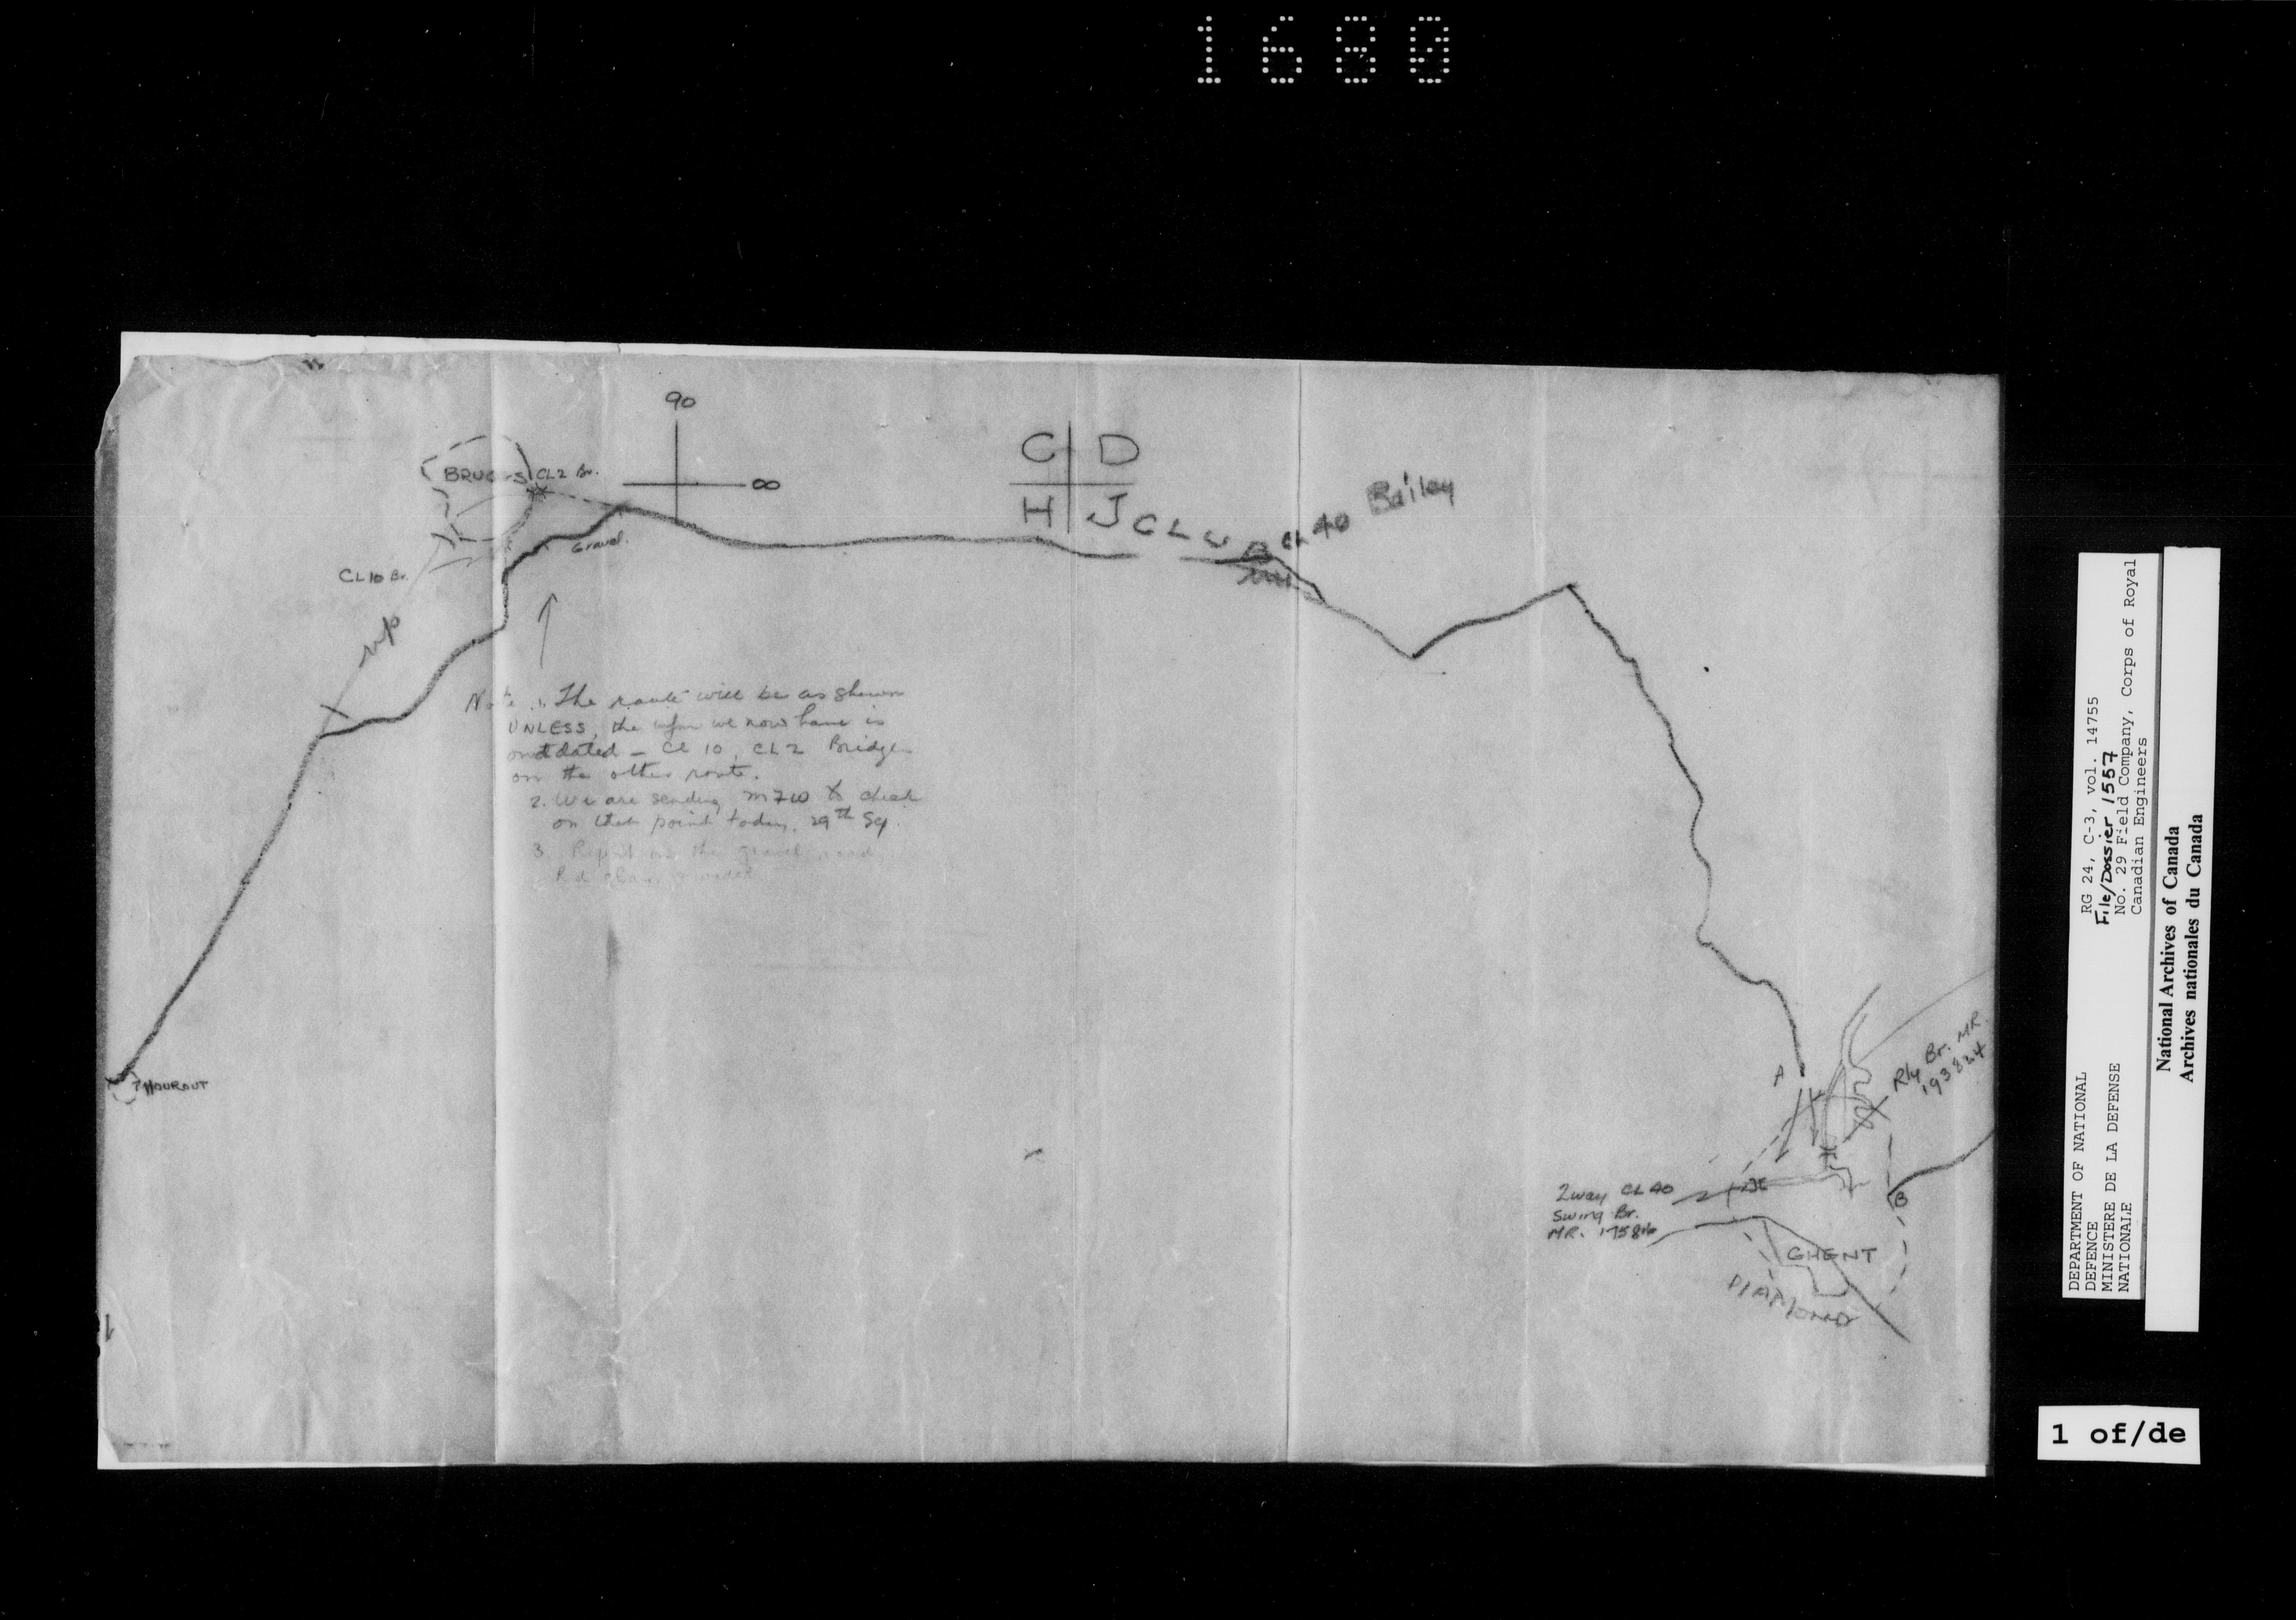 1680
90
BRUGES
CL2 Br.
00
C D
H J
CL 40 Bailey
Gravel.
CL 10 Br.
Note 1. The route will be as shown
UNLESS, the infm we now have is
outdated - CL 10, CL2 Bridges
on the other route.
2. We are sending to check
on that point today, 29th Sep.
3. Report on the gravel road
THOUROUT
A
Rly Br. MR.
193824
2way CL 40
Swing Br.
MR.
B
GHENT
DIAMOND
DEPARTMENT OF NATIONAL
DEFENCE
MINISTERE DE LA DEFENSE
NATIONALE
RG 24, C-3, vol. 14755
File/Dossier 1557
No. 29 Field Company, Corps of Royal
Canadian Engineers
National Archives of Canada
Archives nationales du Canada
1 of/de